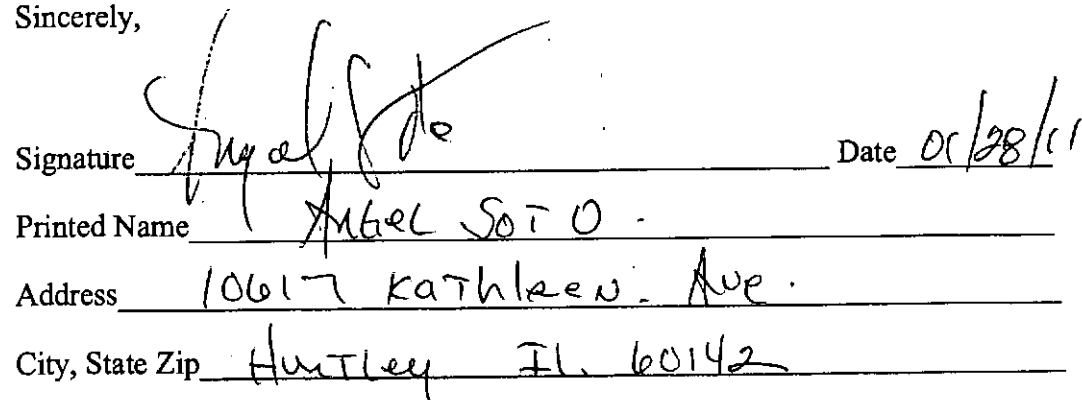 Sincerely,
Signature Angel Soto Date 01/28/11
Printed Name Angel SoTO.
Address 10617 KaThleen. Ave.
City, State Zip HunTley Il. 60142